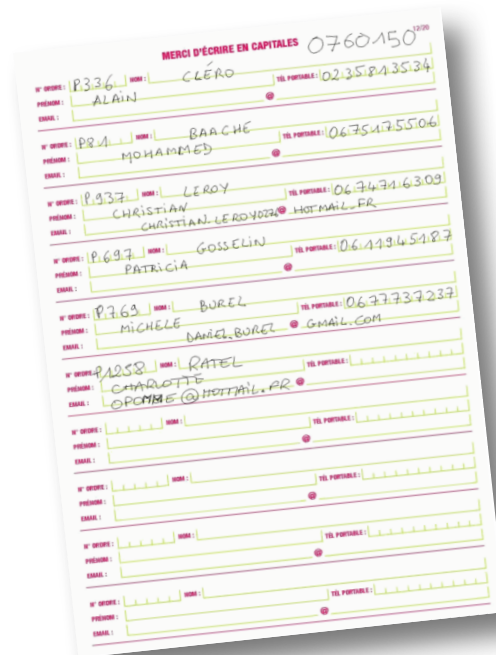 MERCI D'ÉCRIRE EN CAPITALES 0760150 12/20
N° ORDRE : P.336 NOM : CLÉRO TÉL PORTABLE : 0235813534
PRÉNOM : ALAIN
EMAIL : @
N° ORDRE : P81 NOM : BAACHE TÉL PORTABLE : 0675175506
PRÉNOM : MOHAMMED
EMAIL : @
N° ORDRE : P.937 NOM : LEROY TÉL PORTABLE : 0674716309
PRÉNOM : CHRISTIAN
EMAIL : CHRISTIAN.LEROY0276 @ HOTMAIL.FR
N° ORDRE : P.697 NOM : GOSSELIN TÉL PORTABLE : 0611945187
PRÉNOM : PATRICIA
EMAIL : @
N° ORDRE : P.769 NOM : BUREL TÉL PORTABLE : 0677737237
PRÉNOM : MICHELE
EMAIL : DANIEL.BUREL @ GMAIL.COM
N° ORDRE : P1258 NOM : RATEL TÉL PORTABLE :
PRÉNOM : CHARLOTTE
EMAIL : @HOTMAIL.FR @
N° ORDRE : NOM : TÉL PORTABLE :
PRÉNOM :
EMAIL : @
N° ORDRE : NOM : TÉL PORTABLE :
PRÉNOM :
EMAIL : @
N° ORDRE : NOM : TÉL PORTABLE :
PRÉNOM :
EMAIL : @
N° ORDRE : NOM : TÉL PORTABLE :
PRÉNOM :
EMAIL : @